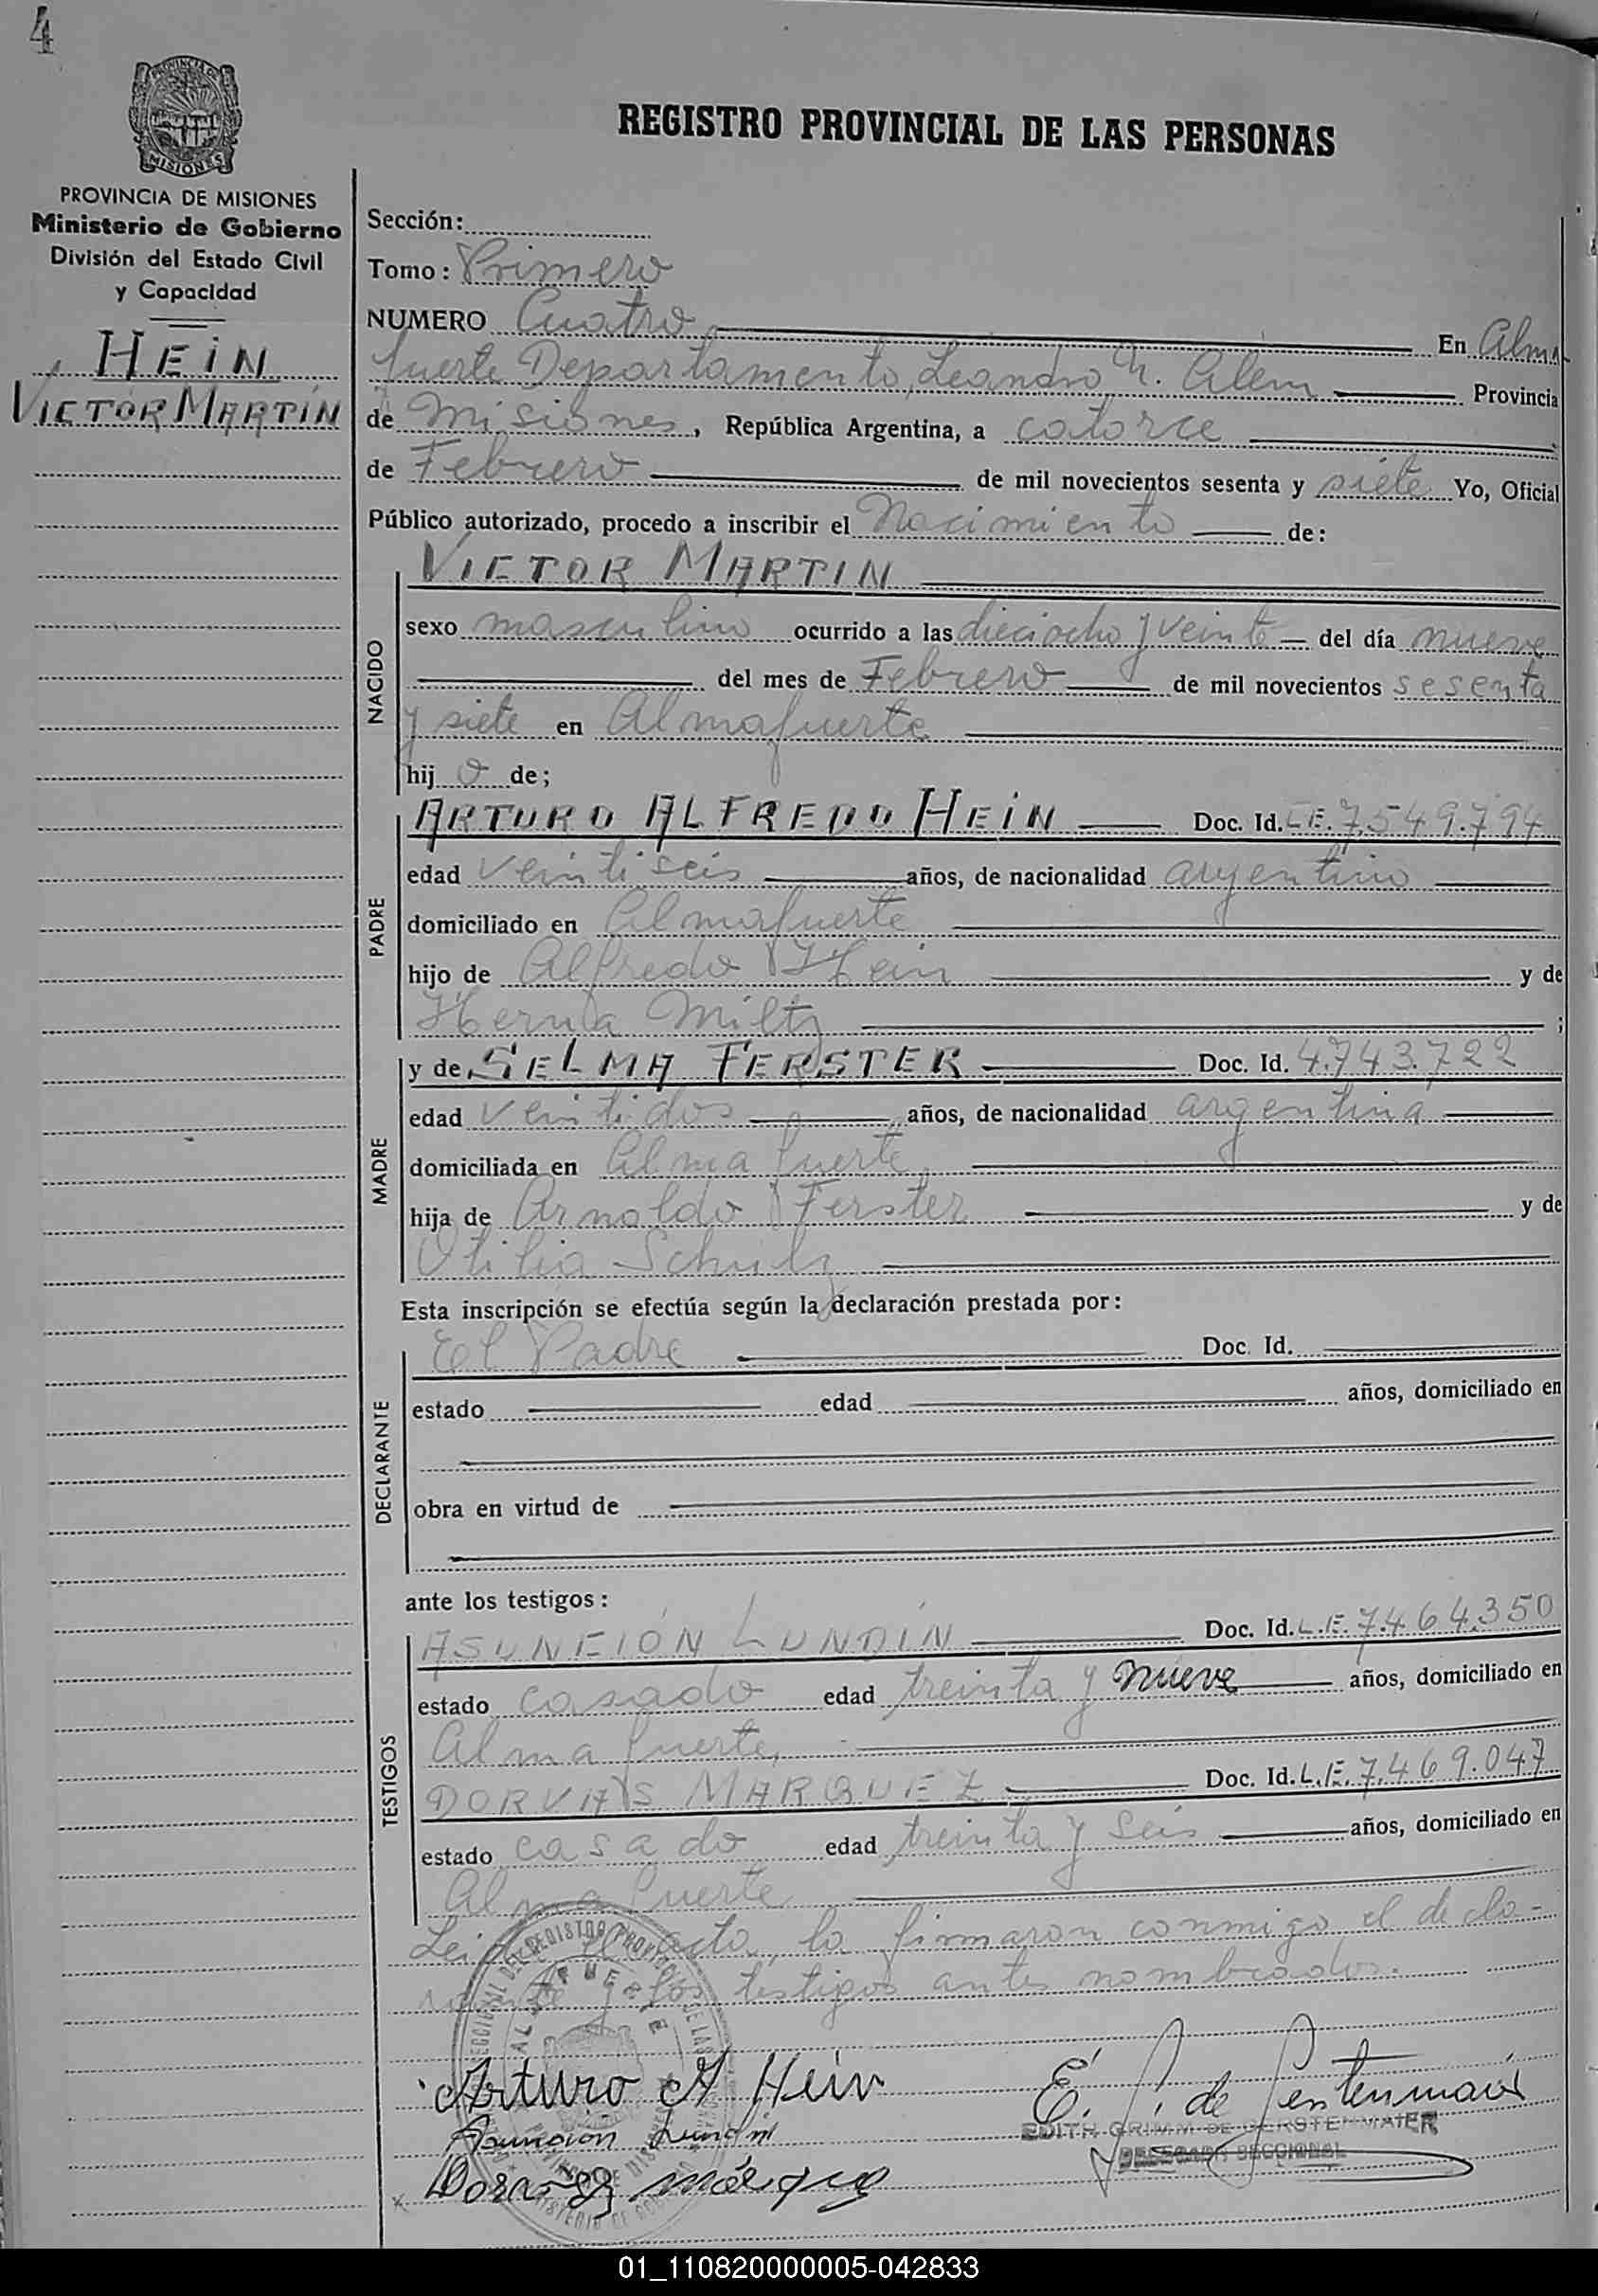 4
PROVINCIA DE
MISIONES
REGISTRO PROVINCIAL DE LAS PERSONAS
PROVINCIA DE MISIONES
Ministerio de Gobierno
División del Estado Civil
y Capacidad
HEIN
VICTOR MARTÍN
Sección:
Tomo: Primero
NUMERO Cuatro En Alma
fuerte Departamento, Leandro N. Alem Provincia
de Misiones, República Argentina, a catorce
de Febrero de mil novecientos sesenta y siete Yo, Oficial
Público autorizado, procedo a inscribir el Nacimiento de:
NACIDO
VICTOR MARTIN
sexo masculino ocurrido a las dieciocho y veinte del día nueve
del mes de Febrero de mil novecientos sesenta
y siete en Almafuerte
hij o de;
PADRE
ARTURO ALFREDO HEIN Doc. Id. L.E. 7.549.794
edad veintiseis años, de nacionalidad argentino
domiciliado en Almafuerte
hijo de Alfredo Hein y de
Miltz ;
MADRE
y de SELMA FERSTER Doc. Id. 4.743.722
edad veintidos años, de nacionalidad argentina
domiciliada en Alma fuerte
hija de Arnoldo Ferster y de
Otilia Schulz
Esta inscripción se efectúa según la declaración prestada por:
DECLARANTE
El Padre Doc. Id.
estado edad años, domiciliado en
obra en virtud de
ante los testigos:
TESTIGOS
ASUNCIÓN LUNDÍN Doc. Id. L.E. 7.464.350
estado casado edad treinta y nueve años, domiciliado en
Alma fuerte,
MARQUEZ Doc. Id. L.E. 7.469.047
estado casado edad treinta y seis años, domiciliado en
Alma fuerte
Leida el acta, la firmaron conmigo el decla-
rante y los testigos antes nombrados.
Arturo A Hein
E. G. de Gerstenmaier
Asunción Lundin
EDITH GRIMM DE GERSTENMAIER
DELEGADA SECCIONAL
01_110820000005-042833